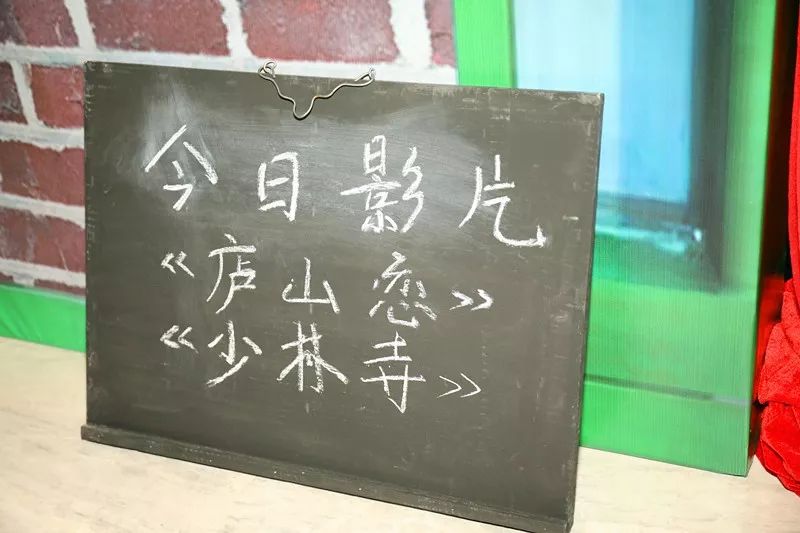 今日影片
《庐山恋》
《少林寺》